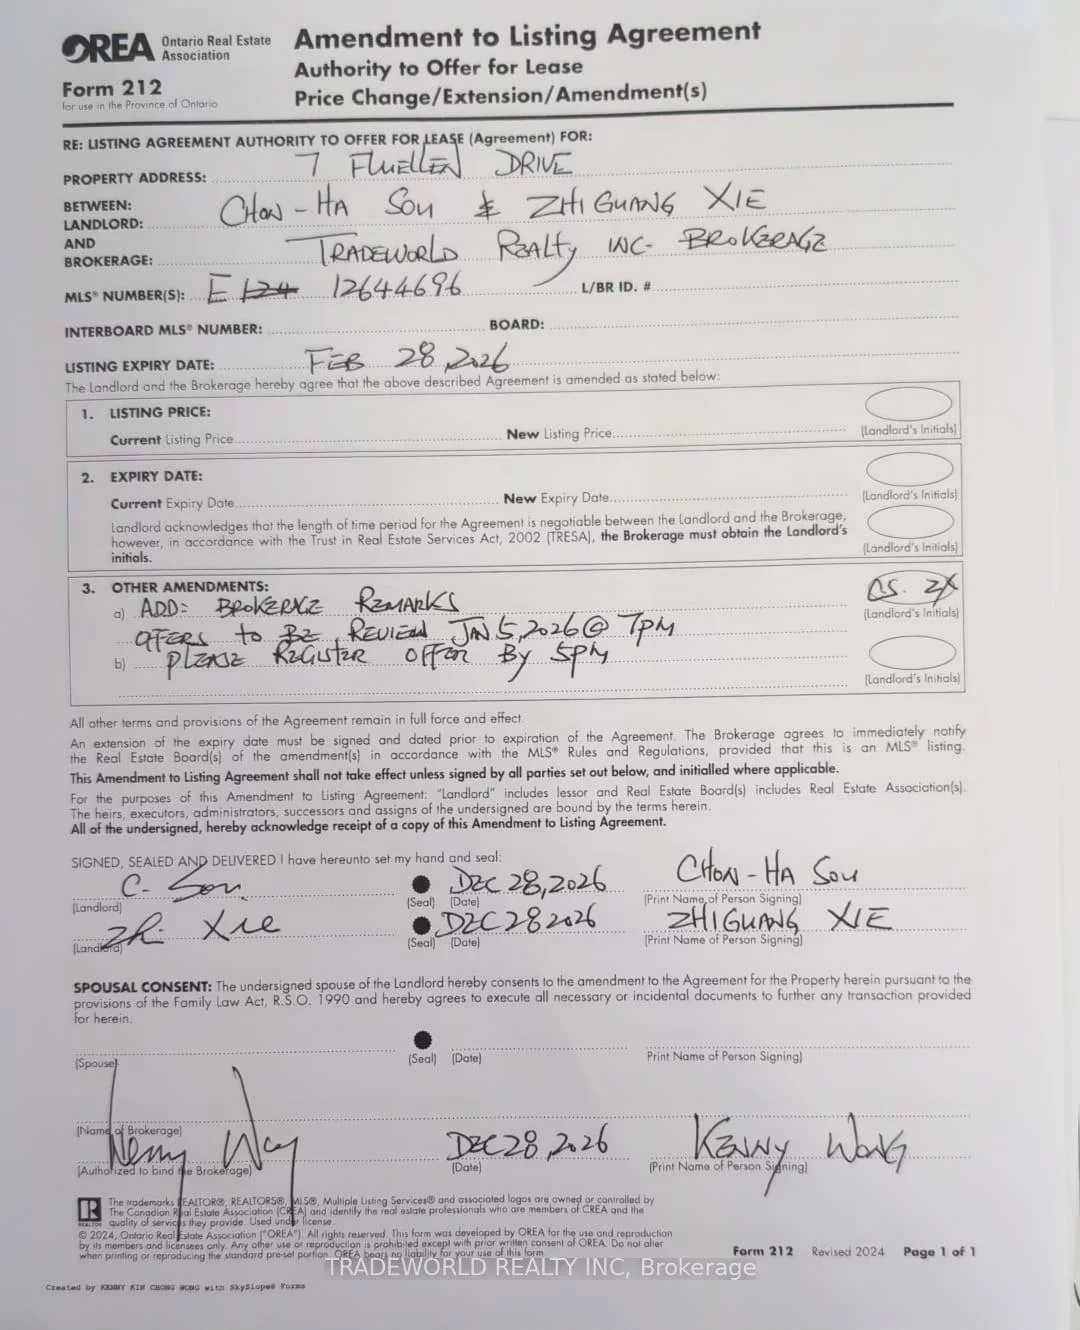 OREA Ontario Real Estate Association
Form 212
for use in the Province of Ontario
Amendment to Listing Agreement
Authority to Offer for Lease
Price Change/Extension/Amendment(s)
RE: LISTING AGREEMENT AUTHORITY TO OFFER FOR LEASE (Agreement) FOR:
PROPERTY ADDRESS: 7 FLUELLEN DRIVE
BETWEEN:
LANDLORD: CHON-HA SOU & ZHIGUANG XIE
AND
BROKERAGE: TRADEWORLD REALTY INC- BROKERAGE
MLS® NUMBER(S): E 124 12644696 L/BR ID. #
INTERBOARD MLS® NUMBER: BOARD:
LISTING EXPIRY DATE: FEB 28, 2026
The Landlord and the Brokerage hereby agree that the above described Agreement is amended as stated below:
1. LISTING PRICE:
Current Listing Price New Listing Price
(Landlord's Initials)
2. EXPIRY DATE:
Current Expiry Date New Expiry Date
(Landlord's Initials)
Landlord acknowledges that the length of time period for the Agreement is negotiable between the Landlord and the Brokerage,
however, in accordance with the Trust in Real Estate Services Act, 2002 (TRESA), the Brokerage must obtain the Landlord's
initials.
(Landlord's Initials)
3. OTHER AMENDMENTS:
a) ADD: BROKERAGE REMARKS
CS. ZX
(Landlord's Initials)
OFFERS to BE REVIEW JAN 5, 2026 @ 7PM
b) PLEASE REGISTER OFFER By 5PM
(Landlord's Initials)
All other terms and provisions of the Agreement remain in full force and effect.
An extension of the expiry date must be signed and dated prior to expiration of the Agreement. The Brokerage agrees to immediately notify
the Real Estate Board(s) of the amendment(s) in accordance with the MLS® Rules and Regulations, provided that this is an MLS® listing.
This Amendment to Listing Agreement shall not take effect unless signed by all parties set out below, and initialled where applicable.
For the purposes of this Amendment to Listing Agreement: "Landlord" includes lessor and Real Estate Board(s) includes Real Estate Association(s).
The heirs, executors, administrators, successors and assigns of the undersigned are bound by the terms herein.
All of the undersigned, hereby acknowledge receipt of a copy of this Amendment to Listing Agreement.
SIGNED, SEALED AND DELIVERED I have hereunto set my hand and seal:
C- Sou DEC 28, 2026 CHON-HA SOU
(Landlord) (Seal) (Date) (Print Name of Person Signing)
Zh. Xie DEC 28 2026 ZHIGUANG XIE
(Landlord) (Seal) (Date) (Print Name of Person Signing)
SPOUSAL CONSENT: The undersigned spouse of the Landlord hereby consents to the amendment to the Agreement for the Property herein pursuant to the
provisions of the Family Law Act, R.S.O. 1990 and hereby agrees to execute all necessary or incidental documents to further any transaction provided
for herein.
(Spouse) (Seal) (Date) Print Name of Person Signing)
(Name of Brokerage)
DEC 28, 2026 KENNY WONG
(Authorized to bind the Brokerage) (Date) (Print Name of Person Signing)
The trademarks REALTOR®, REALTORS®, MLS®, Multiple Listing Services® and associated logos are owned or controlled by
The Canadian Real Estate Association (CREA) and identify the real estate professionals who are members of CREA and the
quality of services they provide. Used under license.
© 2024, Ontario Real Estate Association ("OREA"). All rights reserved. This form was developed by OREA for the use and reproduction
by its members and licensees only. Any other use or reproduction is prohibited except with prior written consent of OREA. Do not alter
when printing or reproducing the standard pre-set portion. OREA bears no liability for your use of this form.
Form 212 Revised 2024 Page 1 of 1
TRADEWORLD REALTY INC, Brokerage
Created by KENNY KIN CHONG WONG with SkySlope® Forms